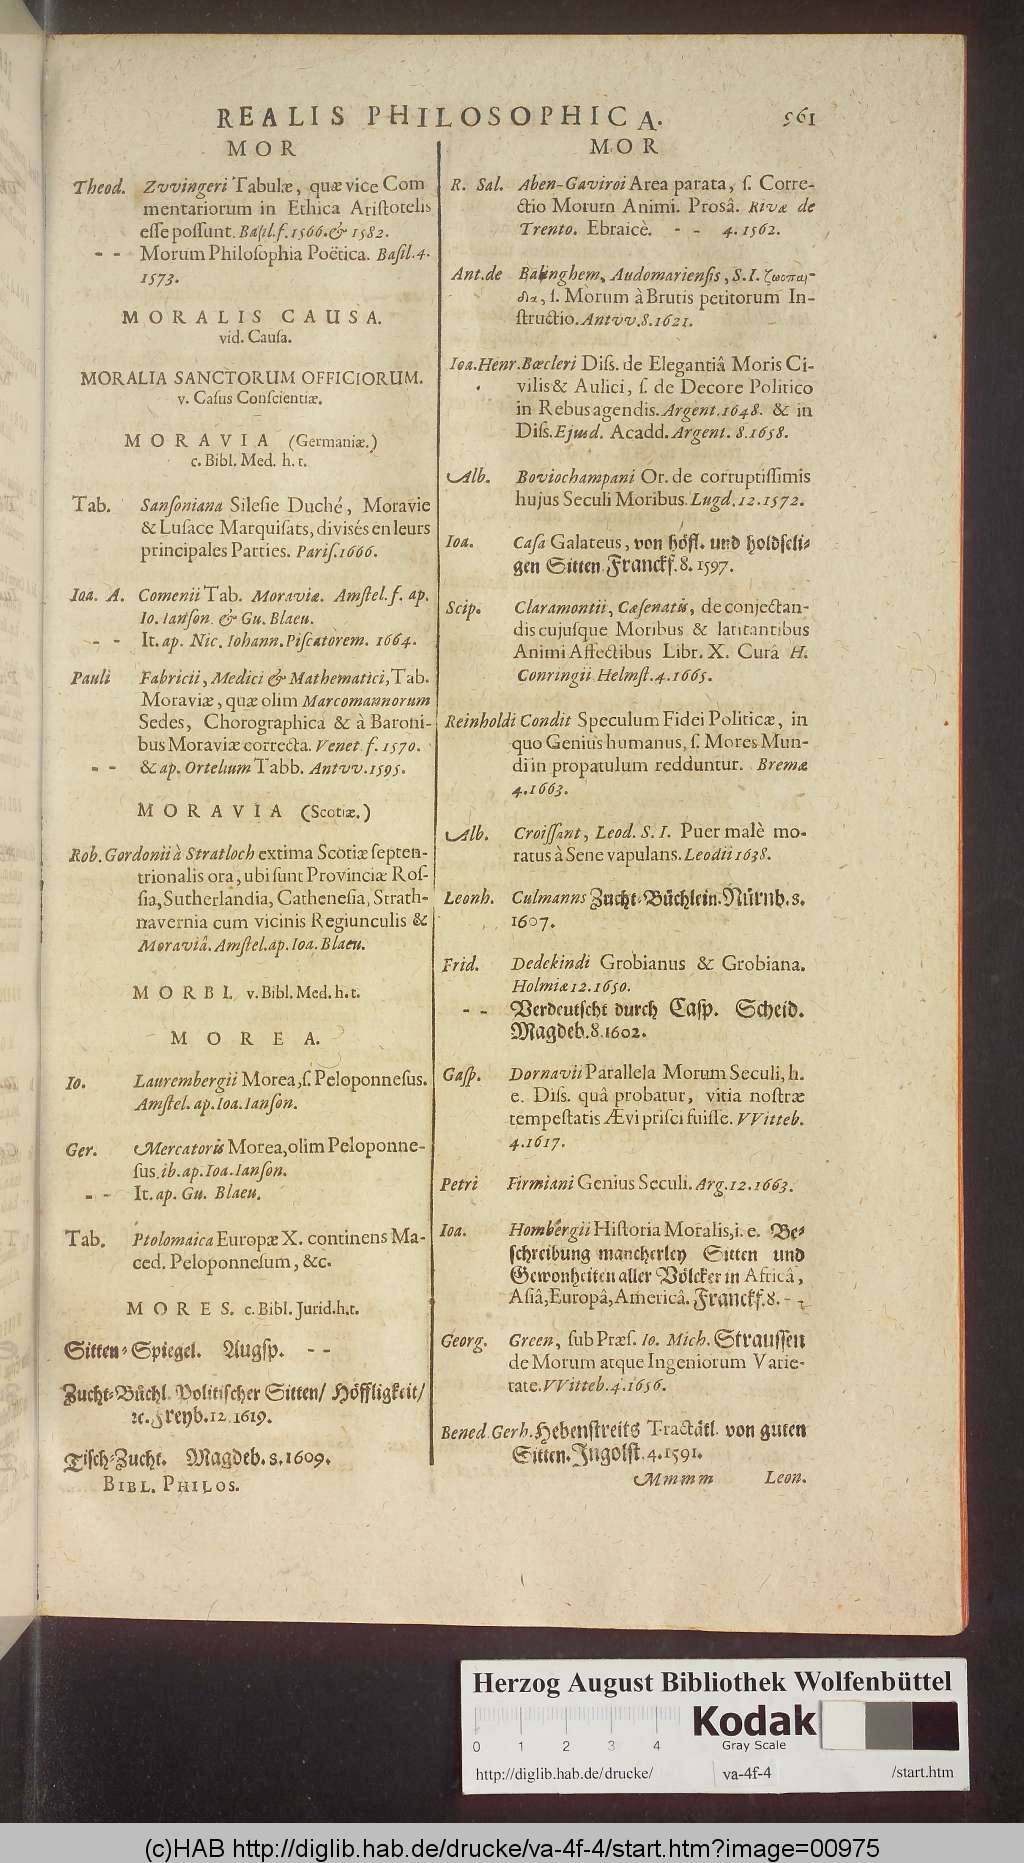 REALIS PHILOSOPHICA. 561
MOR
Theod. Zvvingeri Tabulæ, quæ vice Com
mentariorum in Ethica Aristotelis
esse possunt. Basil. f. 1566. & 1582.
- - Morum Philosophia Poëtica. Basil. 4.
1573.
MORALIS CAUSA.
vid. Causa.
MORALIA SANCTORUM OFFICIORUM.
v. Casus Conscientiæ.
MORAVIA (Germaniæ.)
c. Bibl. Med. h. t.
Tab. Sansoniana Silesie Duché, Moravie
& Lusace Marquisats, divisés en leurs
principales Parties. Paris. 1666.
Ioa. A. Comenii Tab. Moraviæ. Amstel. f. ap.
Io. Ianson. & Gu. Blaeu.
- - It. ap. Nic. Iohann. Piscatorem. 1664.
Pauli Fabricii, Medici & Mathematici, Tab.
Moraviæ, quæ olim Marcomannorum
Sedes, Chorographica & à Baroni-
bus Moraviæ correcta. Venet. f. 1570.
- - & ap. Ortelium Tabb. Antvv. 1595.
MORAVIA (Scotiæ.)
Rob. Gordonii à Stratloch extima Scotiæ septen-
trionalis ora, ubi sunt Provinciæ Ros-
sia, Sutherlandia, Cathenesia, Strath-
navernia cum vicinis Regiunculis &
Moraviâ. Amstel. ap. Ioa. Blaeu.
MORBI. v. Bibl. Med. h. t.
MOREA.
Io. Laurembergii Morea, s. Peloponnesus.
Amstel. ap. Ioa. Ianson.
Ger. Mercatoris Morea, olim Peloponne-
sus. ib. ap. Ioa. Ianson.
- - It. ap. Gu. Blaeu.
Tab. Ptolomaica Europæ X. continens Ma-
ced. Peloponnesum, &c.
MORES. c. Bibl. Jurid. h. t.
Sitten-Spiegel. Augsp. - -
Zucht-Büchl. Politischer Sitten/ Höffligkeit/
ꝛc. Freyb. 12. 1619.
Tisch-Zucht. Magdeb. 8. 1609.
BIBL. PHILOS.
MOR
R. Sal. Aben-Gaviroi Area parata, s. Corre-
ctio Morum Animi. Prosâ. Rivæ de
Trento. Ebraicè. - - 4. 1562.
Ant. de Balinghem, Audomariensis, S. I. ζωοπαι-
δια, s. Morum à Brutis petitorum In-
structio. Antvv. 8. 1621.
Ioa. Henr. Bœcleri Diss. de Elegantiâ Moris Ci-
vilis & Aulici, s. de Decore Politico
in Rebus agendis. Argent. 1648. & in
Diss. Ejusd. Acadd. Argent. 8. 1658.
Alb. Boviochampani Or. de corruptissimis
hujus Seculi Moribus. Lugd. 12. 1572.
Ioa. Casa Galateus, von höfl. und holdseli-
gen Sitten. Franckf. 8. 1597.
Scip. Claramontii, Cæsenatis, de conjectan-
dis cujusque Moribus & latitantibus
Animi Affectibus Libr. X. Curâ H.
Conringii Helmst. 4. 1665.
Reinholdi Condit Speculum Fidei Politicæ, in
quo Genius humanus, s. Mores Mun-
di in propatulum redduntur. Bremæ
4. 1663.
Alb. Croissant, Leod. S. I. Puer malè mo-
ratus à Sene vapulans. Leodii 1638.
Leonh. Culmanns Zucht-Büchlein. Nürnb. 8.
1607.
Frid. Dedekindi Grobianus & Grobiana.
Holmiæ 12. 1650.
- - Verdeutscht durch Casp. Scheid.
Magdeb. 8. 1602.
Casp. Dornavii Parallela Morum Seculi, h.
e. Diss. quâ probatur, vitia nostræ
tempestatis Ævi prisci fuisse. VVitteb.
4. 1617.
Petri Firmiani Genius Seculi. Arg. 12. 1663.
Ioa. Hombergii Historia Moralis, i. e. Be-
schreibung mancherley Sitten und
Gewonheiten aller Völcker in Africâ,
Asiâ, Europâ, Americâ. Franckf. 8. - -
Georg. Green, sub Præs. Io. Mich. Straussen
de Morum atque Ingeniorum Varie-
tate. VVitteb. 4. 1656.
Bened. Gerh. Hebenstreits Tractätl. von guten
Sitten. Ingolst. 4. 1591.
Mmmm Leon.
Herzog August Bibliothek Wolfenbüttel
Kodak
Gray Scale
0 1 2 3 4
http://diglib.hab.de/drucke/ va-4f-4 /start.htm
(c)HAB http://diglib.hab.de/drucke/va-4f-4/start.htm?image=00975